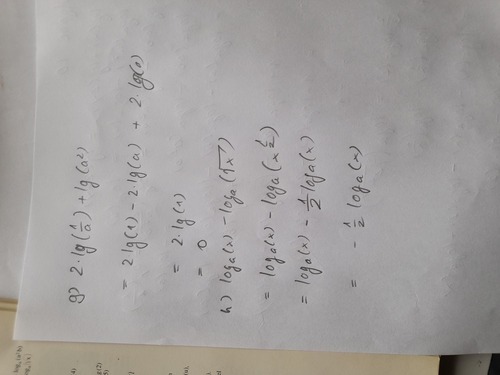 g) 2·lg(1/a) + lg(a²)
= 2 lg(1) - 2·lg(a) + 2·lg(a)
= 2·lg(1)
= 0
h) loga(x) - loga(√x)
= loga(x) - loga(x^1/2)
= loga(x) - 1/2 loga(x)
= - 1/2 loga(x)